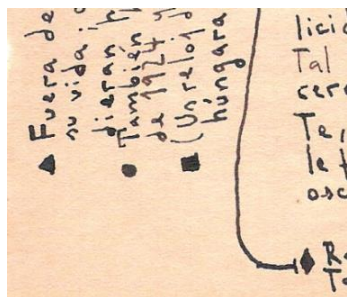 ▲ Fuera de
su vida :
dieran h
● También
de 1924 y
■ (Un reloj d
húngara
licid
Tal
cere
Te,
le f
osc
♦ R
To